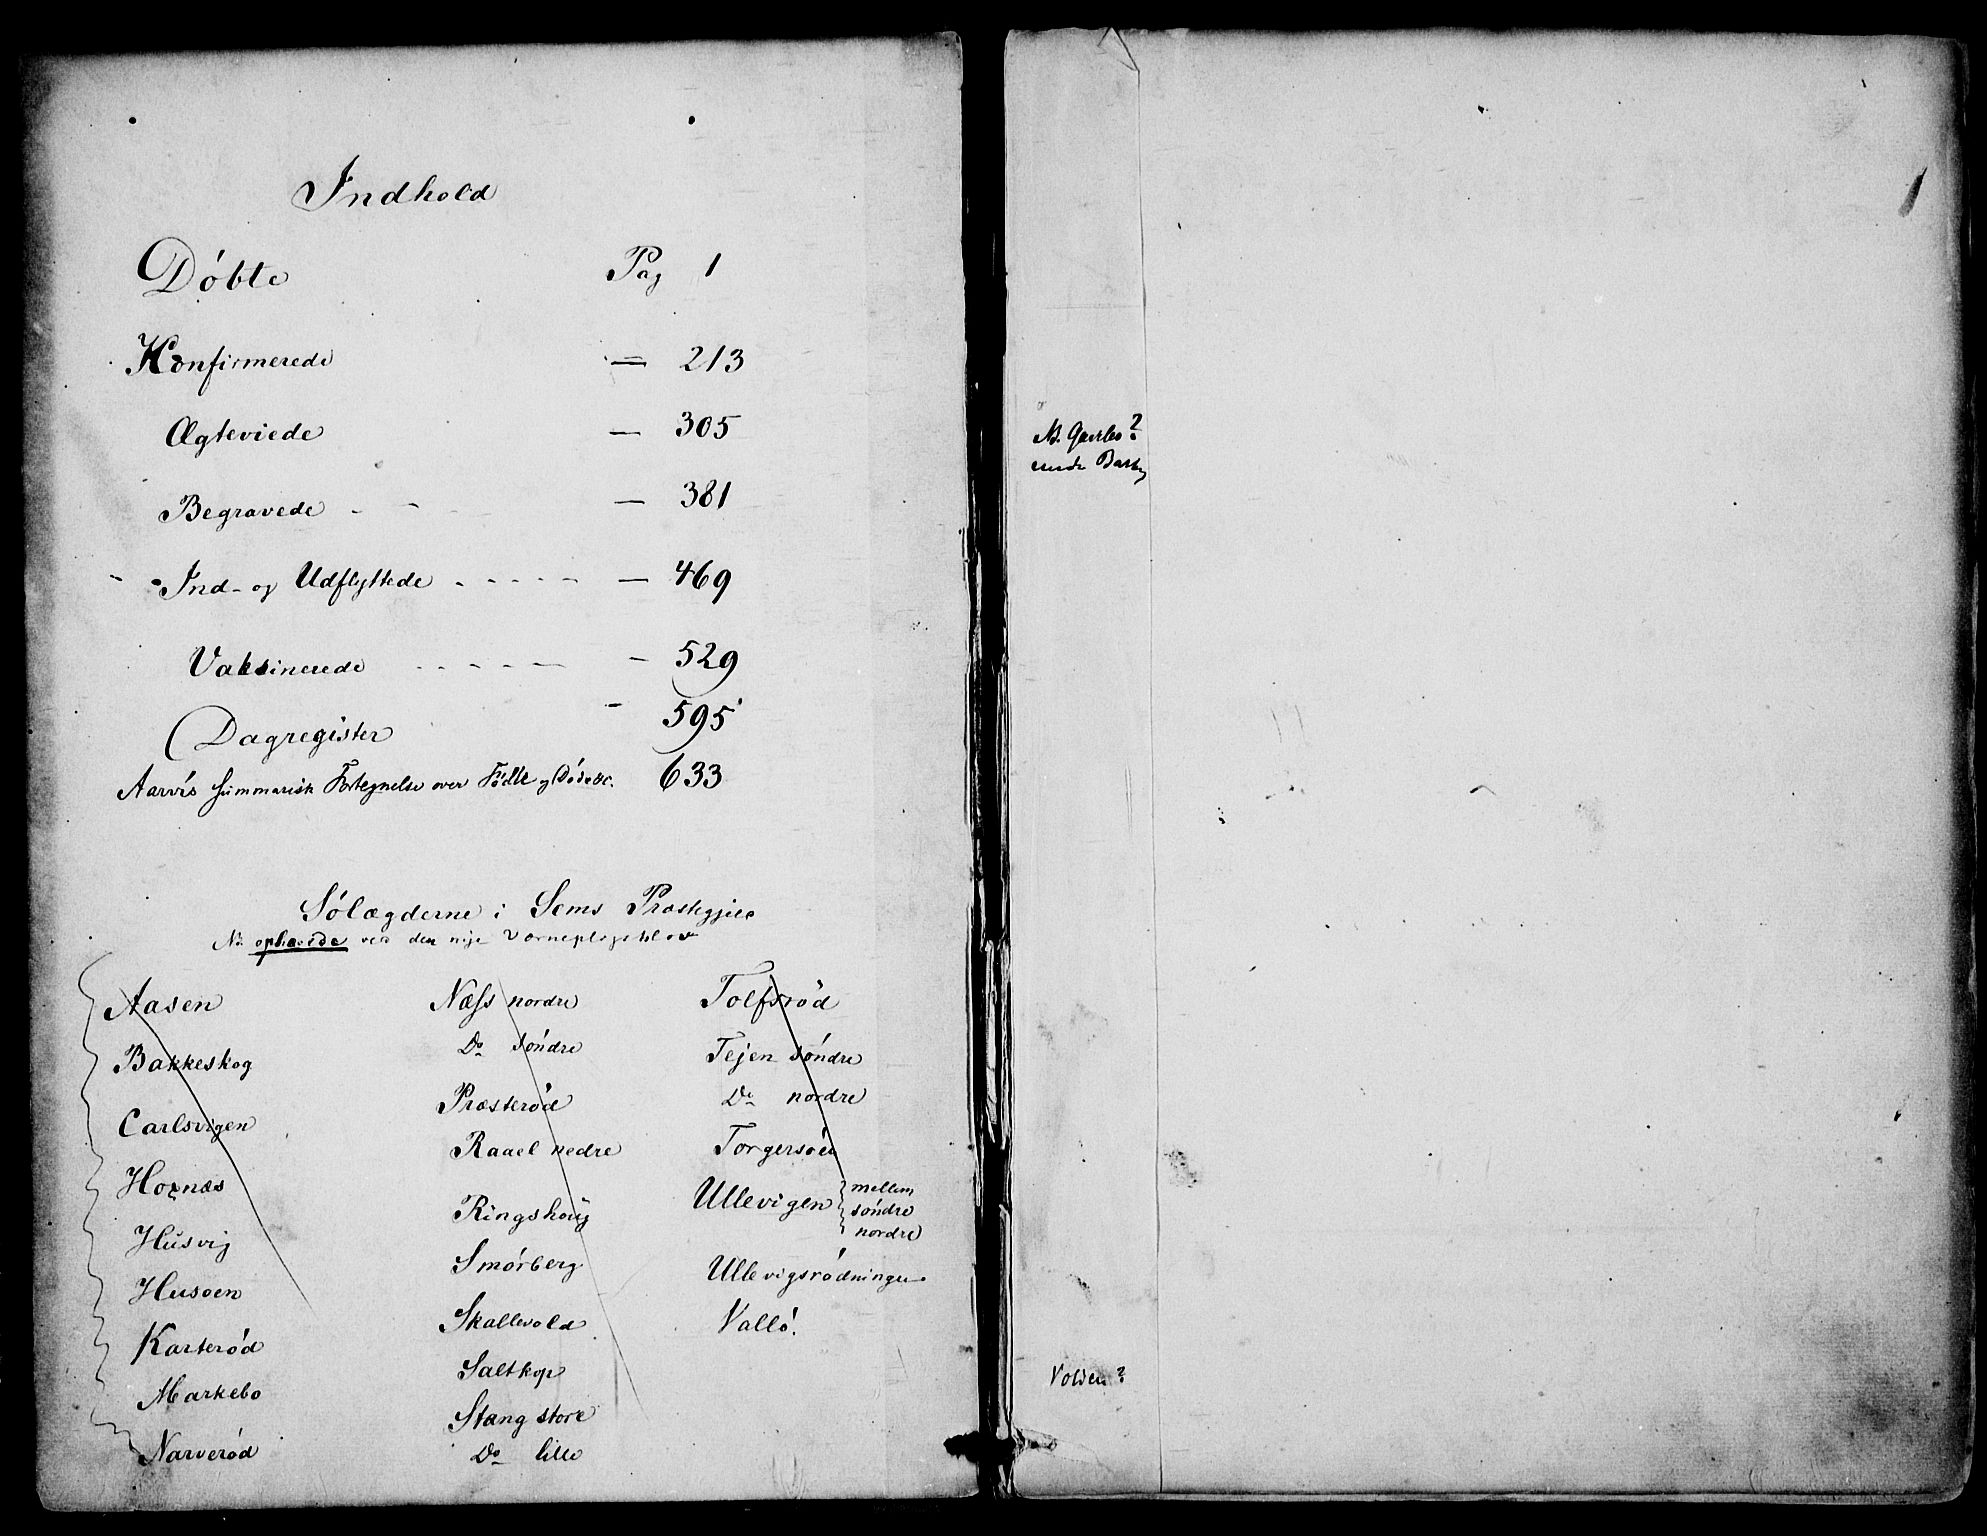 Indhold
Döbte Pag 1
Konfirmerede — 213
Ægteviede — 305
Begravede - - — 381
Ind- og Udflyttede - - - - - — 469
Vaksinerede - - - - - - 529
Dagregister - 595
Aarvis summarisk Fortegnelse over Födte og Döde &c. 633
Sölægderne i Sems Præstegjeld
NB. ophævede ved den nye Værnepligtslov
Aasen
Bakkeskog
Carlsvigen
Hoxnæs
Husvig
Husöen
Karteröd
Markebo
Narveröd
Næss nordre
Do söndre
Præsteröd
Raael nedre
Ringshoug
Smörberg
Skallevold
Saltkop
Stang store
Do lille
Tolfsröd
Tejen söndre
Do nordre
Torgersöen
Ullevigen mellem
söndre
nordre
Ullevigsrödningen
Vallö.
1
NB.
Volden?